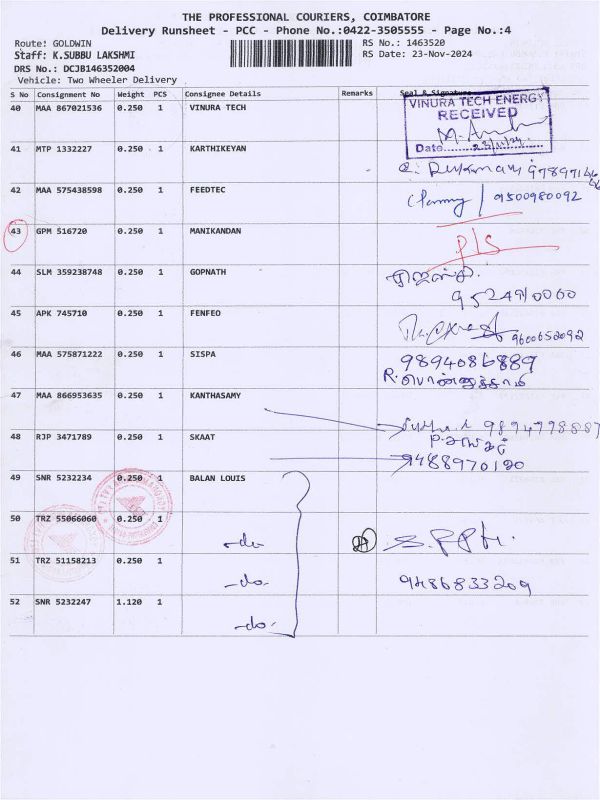 THE PROFESSIONAL COURIERS, COIMBATORE
Delivery Runsheet - PCC - Phone No.:0422-3505555 - Page No.:4
Route: GOLDWIN RS No.: 1463520
Staff: K.SUBBU LAKSHMI RS Date: 23-Nov-2024
DRS No.: DCJB146352004
Vehicle: Two Wheeler Delivery
S No Consignment No Weight PCS Consignee Details Remarks Seal & Signature
40 MAA 867021536 0.250 1 VINURA TECH
VINURA TECH ENERGY
RECEIVED
Date 23/11/24
41 MTP 1332227 0.250 1 KARTHIKEYAN
42 MAA 575438598 0.250 1 FEEDTEC 9500980092
43 GPM 516720 0.250 1 MANIKANDAN P/S
44 SLM 359238748 0.250 1 GOPNATH
45 APK 745710 0.250 1 FENFEO 9600652092
46 MAA 575871222 0.250 1 SISPA 9894086889
47 MAA 866953635 0.250 1 KANTHASAMY
48 RJP 3471789 0.250 1 SKAAT 9488970120
49 SNR 5232234 0.250 1 BALAN LOUIS
50 TRZ 55066060 0.250 1 -do-
51 TRZ 51158213 0.250 1 -do- 9486833209
52 SNR 5232247 1.120 1 -do-